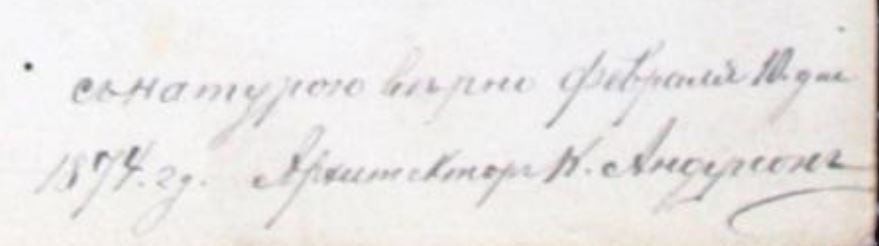 съ натурою вѣрно Февраля 10 дня
1874. гд. Архитекторъ К. Андреонъ